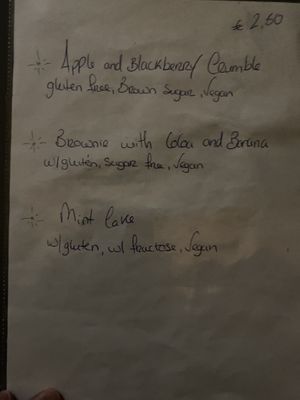 € 2,50
Apple and Blackberry Crumble
gluten free, Brown Sugar, Vegan
Brownie with Cocoa and Banana
w/gluten, Sugar free, Vegan
Mint Cake
w/gluten, w/ fructose, Vegan